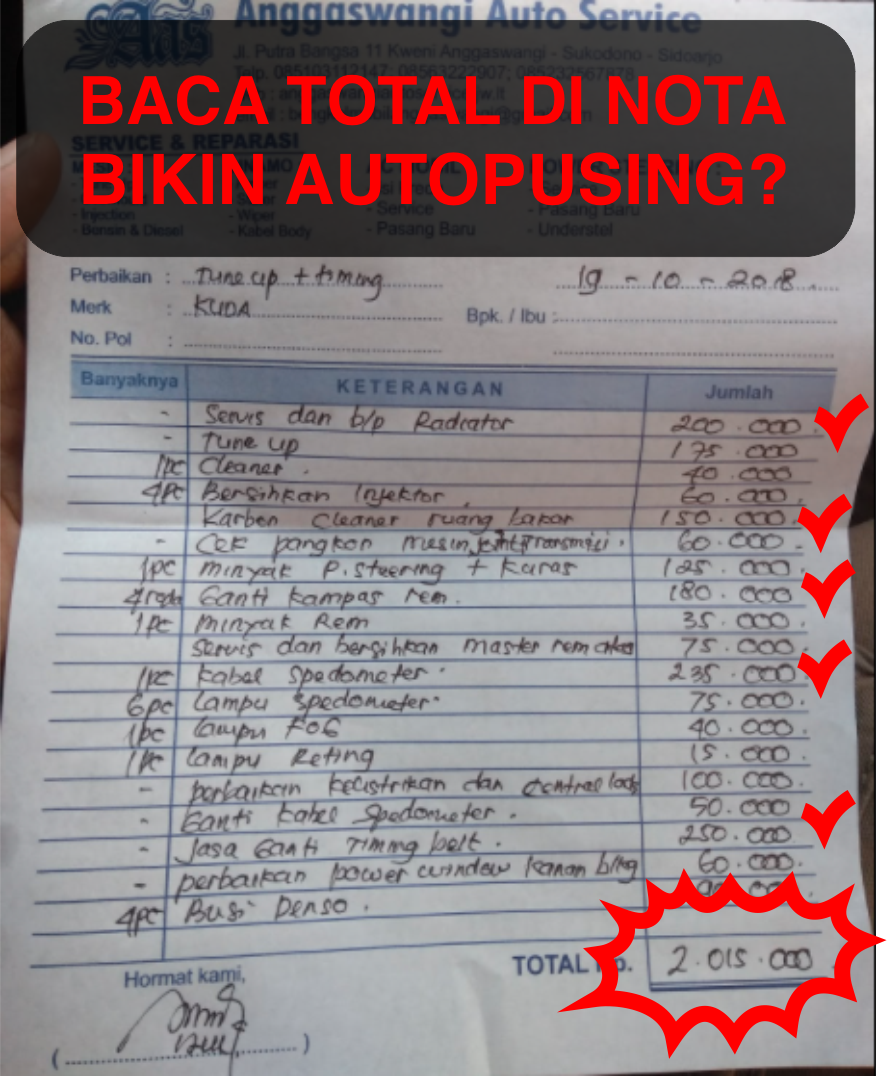 Anggaswangi Auto Service
Jl. Putra Bangsa 11 Kweni Anggaswangi - Sukodono - Sidoarjo
Telp. 085103112147; 08563222907; 085232567878
BACA TOTAL DI NOTA
BIKIN AUTOPUSING?
SERVICE & REPARASI
- Injection - Wiper - Service - Pasang Baru
- Bensin & Diesel - Kabel Body - Pasang Baru - Understel
Perbaikan : Tune up + timing 19 - 10 - 2018
Merk : KUDA Bpk. / Ibu :
No. Pol :
Banyaknya KETERANGAN Jumlah
- Servis dan b/p Radiator 200.000
- Tune up 175.000
1pc Cleaner. 40.000
4pc Bersihkan Injektor 60.000
Karbon Cleaner ruang bakar 150.000
- Cek pangkon mesin, Transmisi. 60.000
1pc minyak P. Steering + Kuras 125.000
4roda Ganti Kampas rem. 180.000
1pc minyak Rem 35.000
Servis dan bersihkan master rem 75.000
1pc Kabel Spedometer. 235.000
6pc Lampu Spedometer 75.000
1pc Lampu FOG 40.000
1pc Lampu Reting 15.000
- perbaikan kelistrikan dan central lock 100.000
- Ganti Kabel Spedometer. 50.000
- Jasa Ganti Timing belt. 250.000
- perbaikan power window kanan blkg 60.000
4pc Busi Denso.
TOTAL Rp. 2.015.000
Hormat kami,